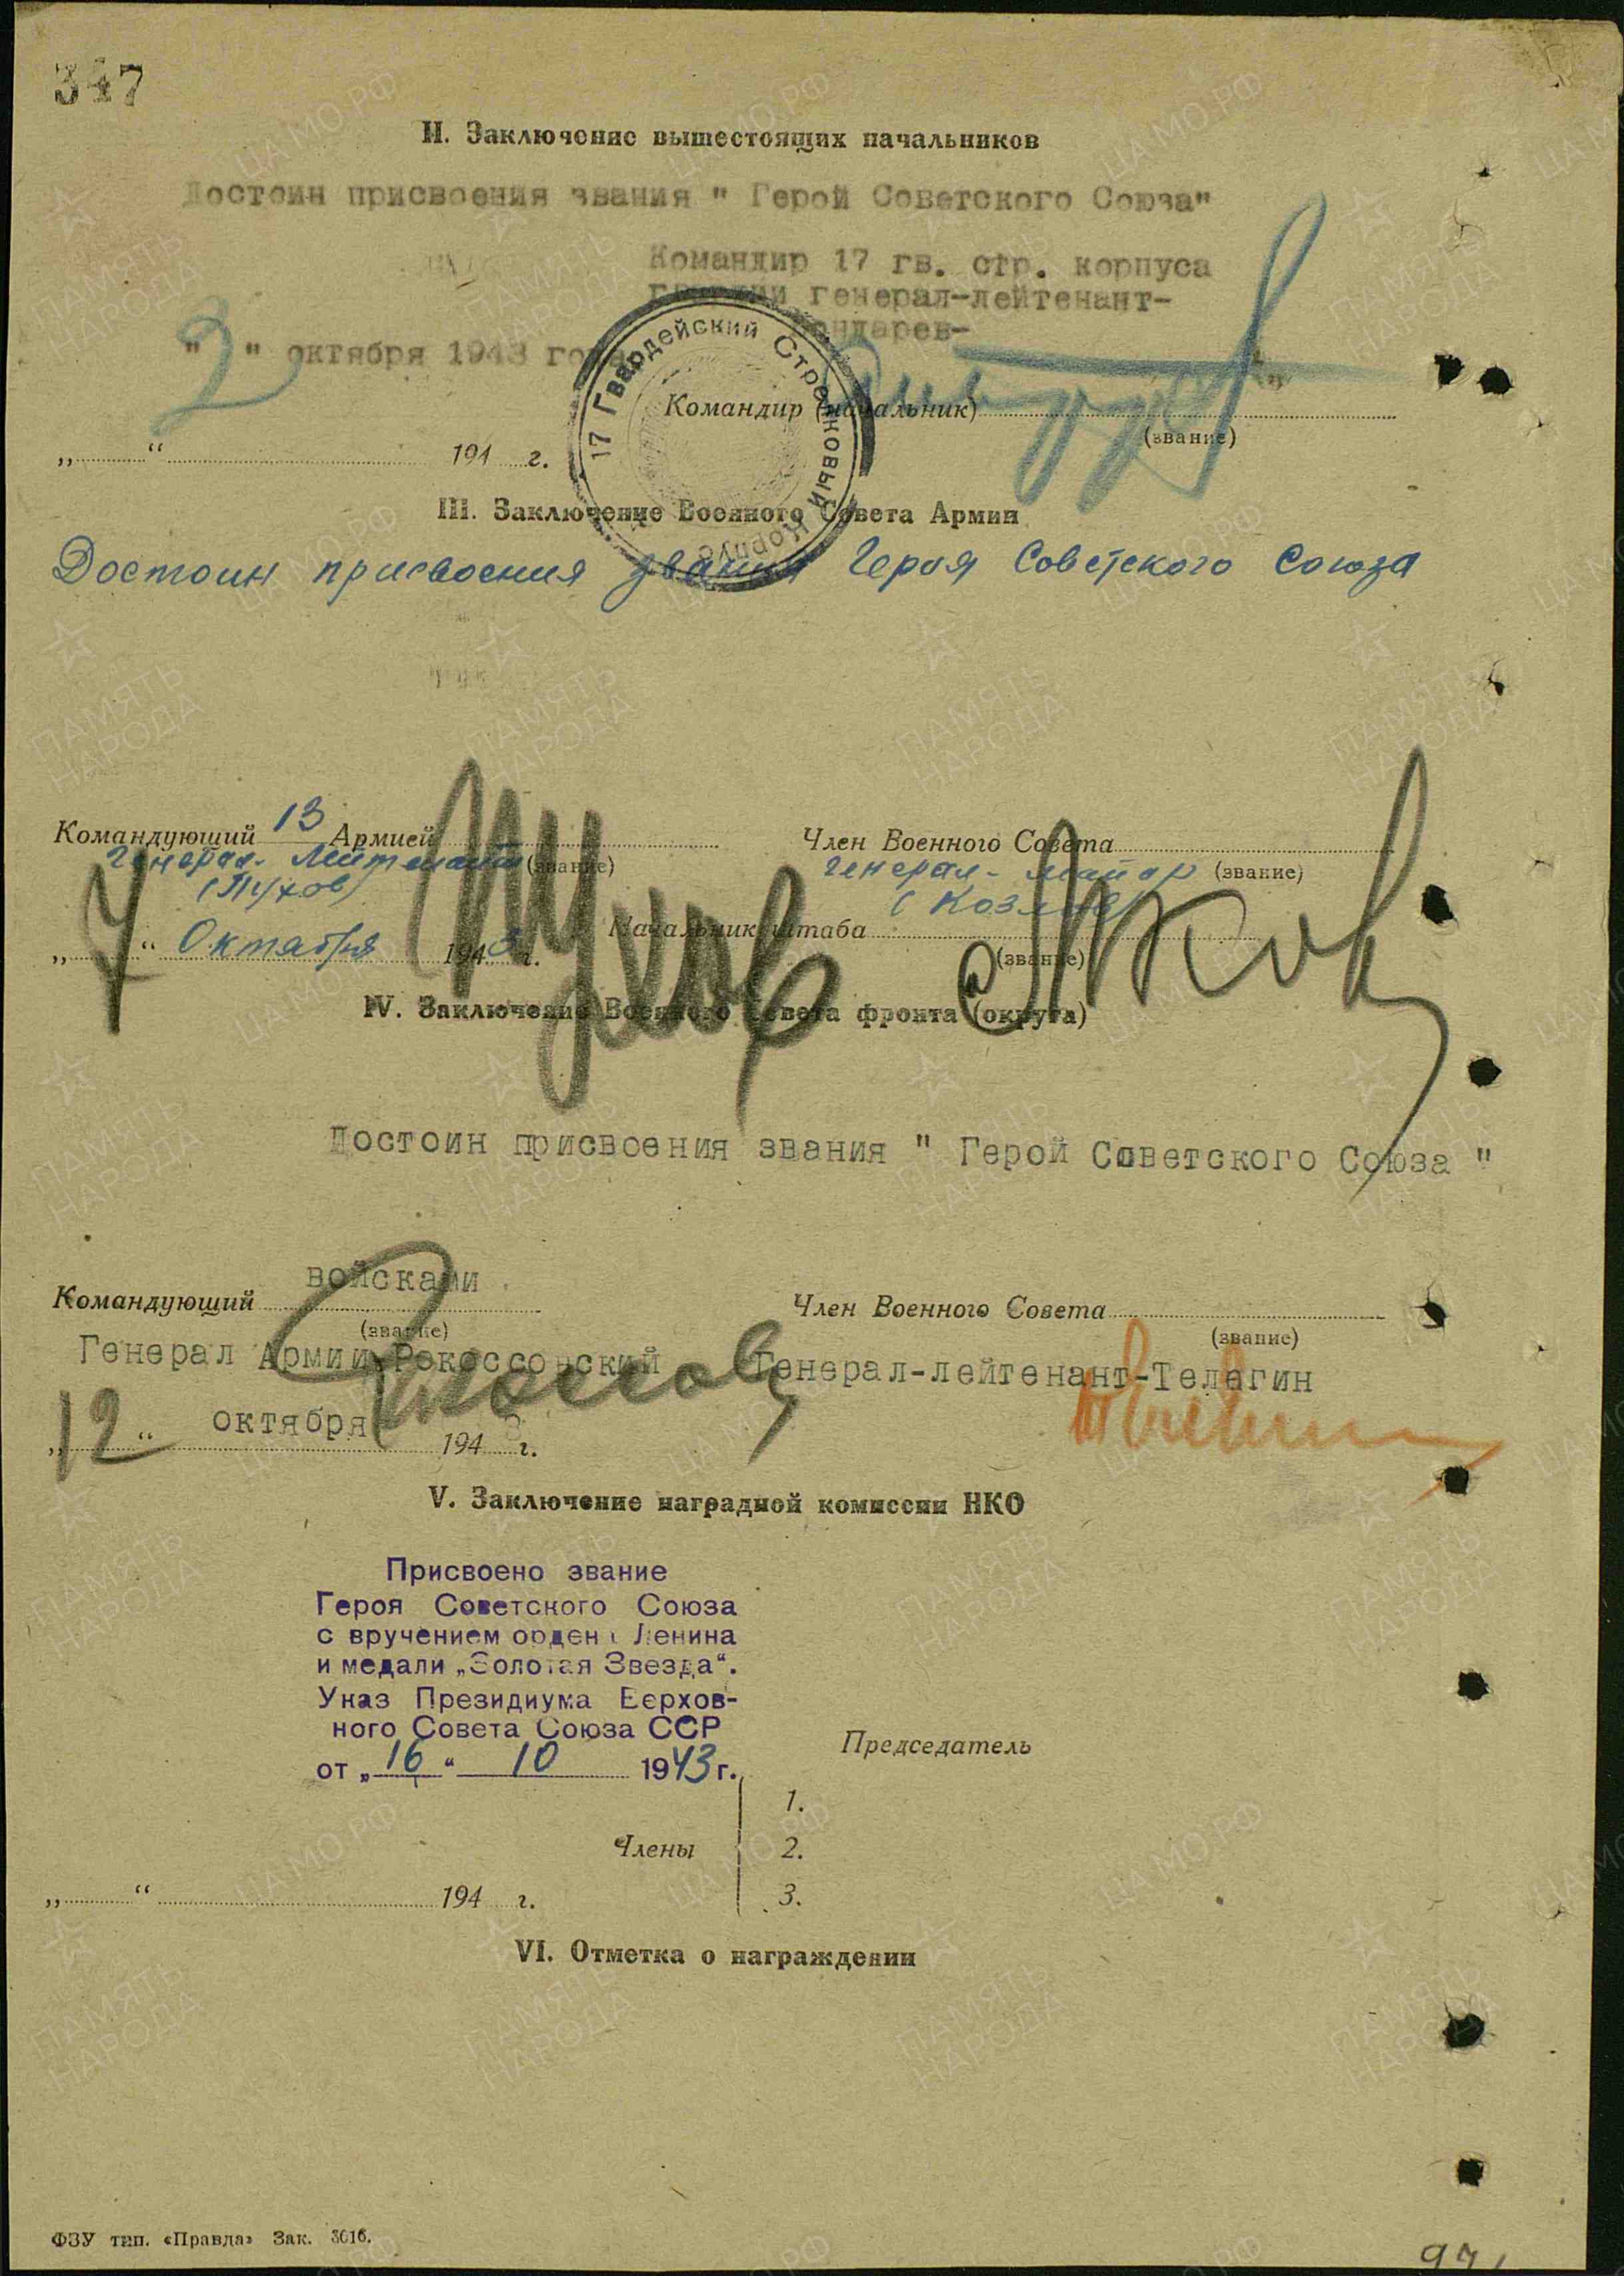 347
II. Заключение вышестоящих начальников
Достоин присвоения звания " Герой Советского Союза"
Командир 17 гв. стр. корпуса
гвардии генерал-лейтенант-
Бондарев-
" 2 " октября 1943 года
17 Гвардейский Стрелковый Корпус
Командир (начальник)
(звание)
„ “ 194 г.
III. Заключение Военного Совета Армии
Достоин присвоения звания Героя Советского Союза
Командующий 13 Армией
Генерал-Лейтенант (звание)
(Пухов)
Пухов
Член Военного Совета
генерал-майор (звание)
(Козлов)
Козлов
„ 7 “ Октября 1943 г.
Начальник штаба
(звание)
IV. Заключение Военного Совета фронта (округа)
Достоин присвоения звания " Герой Советского Союза "
Командующий войсками
(звание)
Генерал Армии-Рокоссовский
Член Военного Совета
(звание)
Генерал-лейтенант-Телегин
„ 12 “ октября 1943 г.
V. Заключение наградной комиссии НКО
Присвоено звание
Героя Советского Союза
с вручением ордена Ленина
и медали „Золотая Звезда“.
Указ Президиума Верхов-
ного Совета Союза ССР
от „ 16 “ 10 1943 г.
Председатель
Члены
1.
2.
3.
„ “ 194 г.
VI. Отметка о награждении
ФЗУ тип. «Правда» Зак. 3016.
ПАМЯТЬ НАРОДА
ЦАМО.РФ